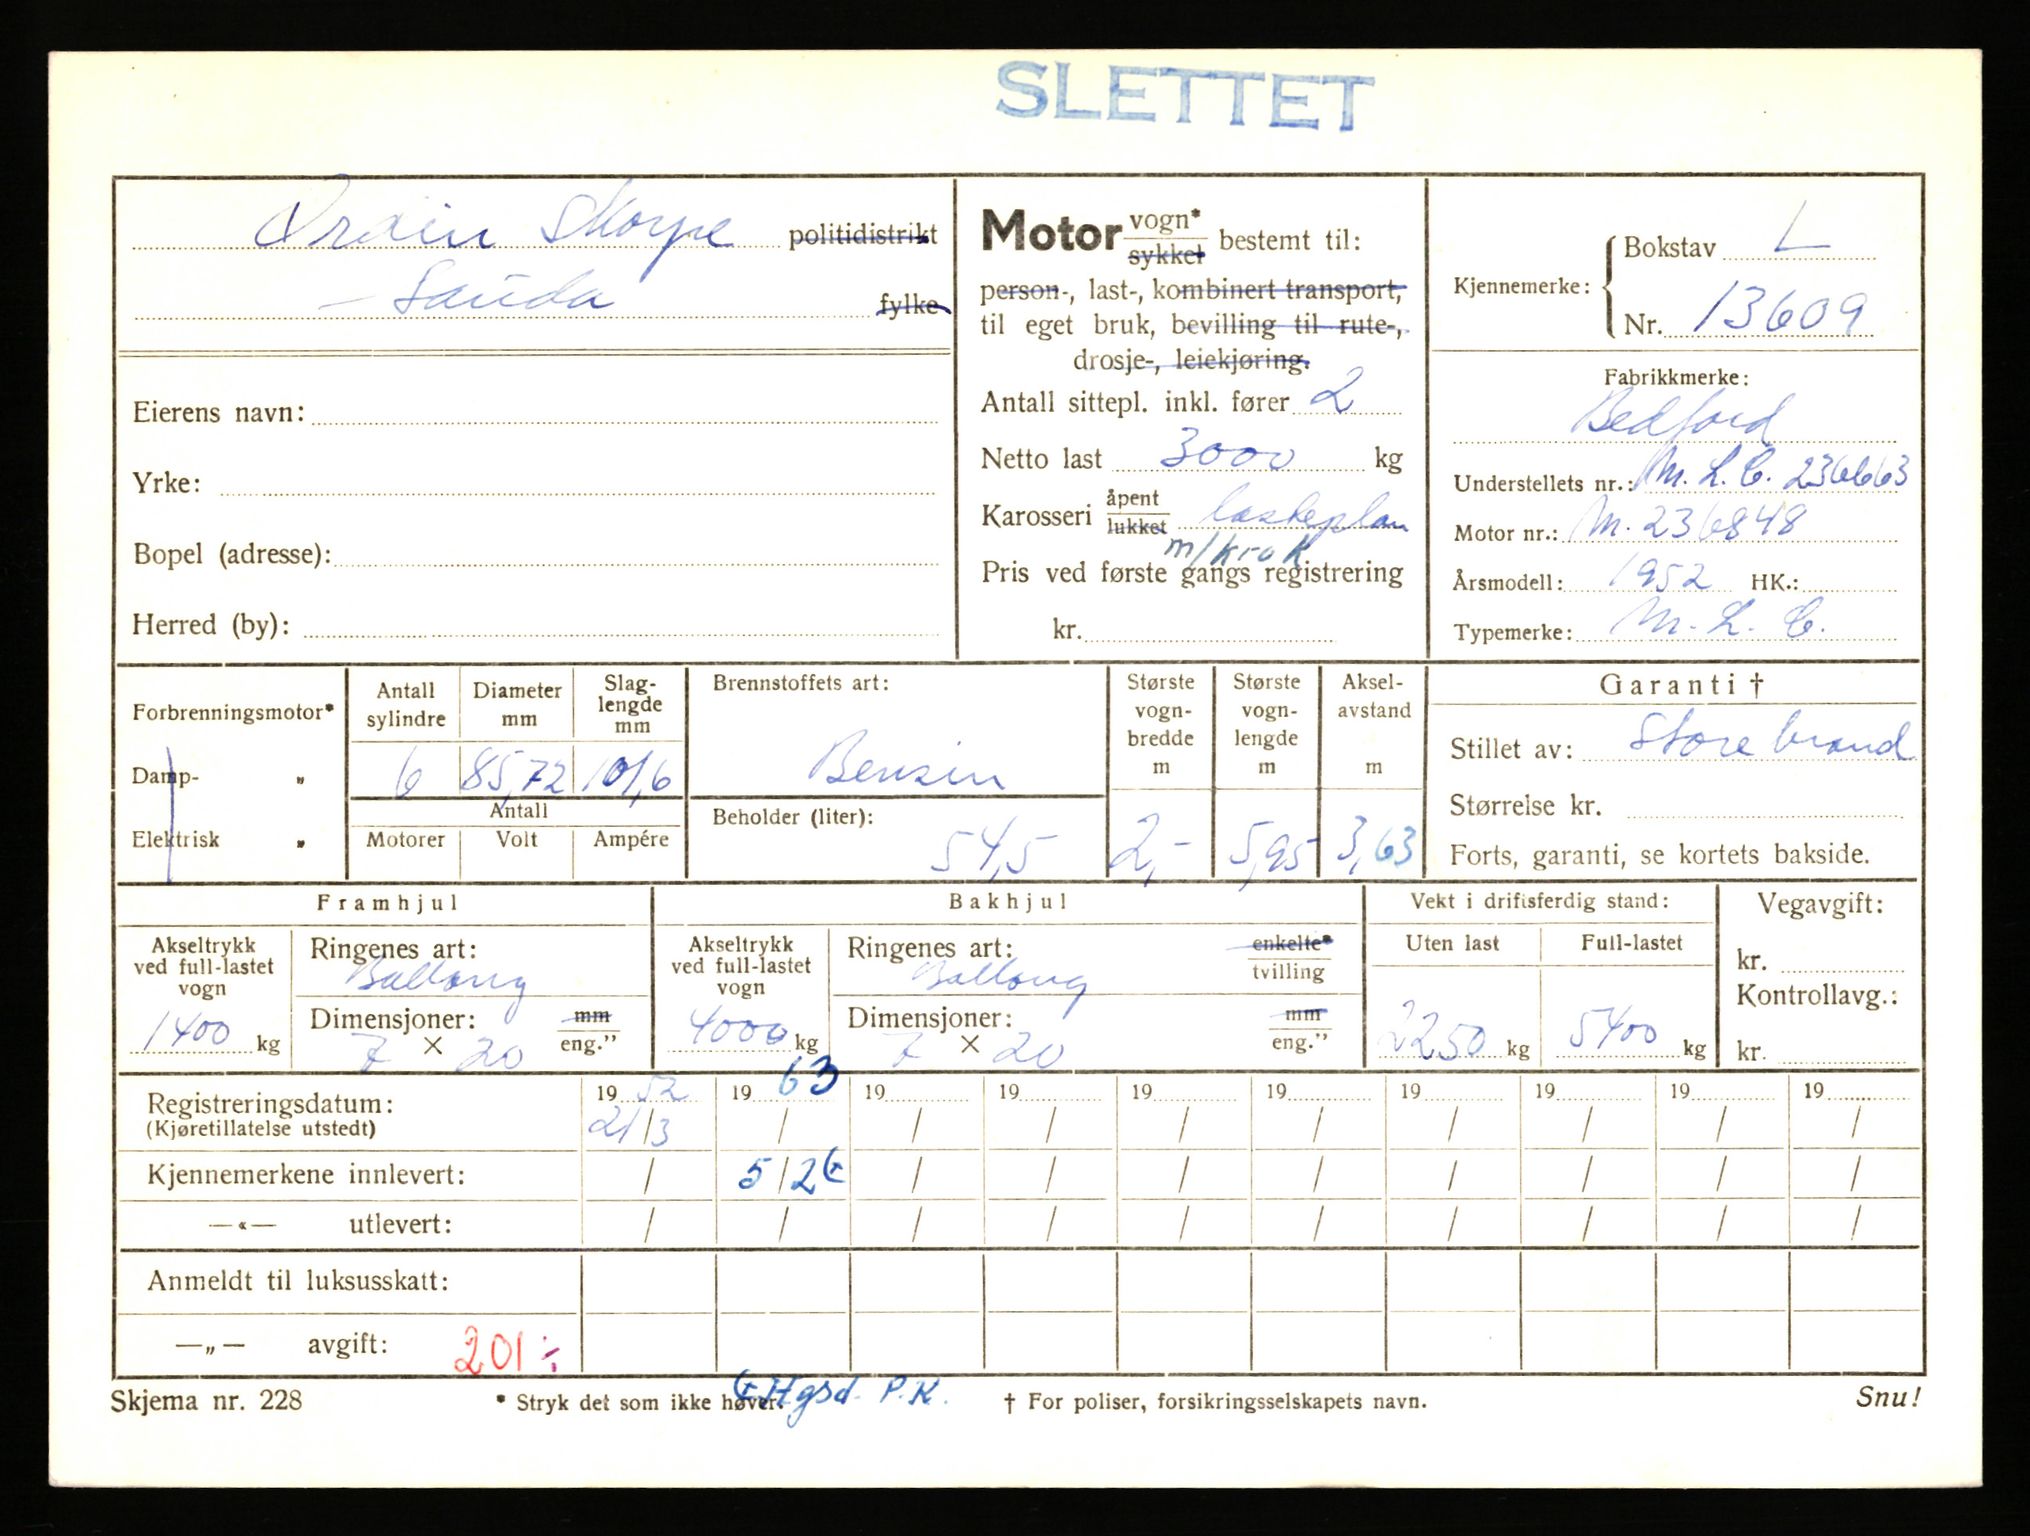 SLETTET
Skorpe politidistrikt
Sauda fylke
Eierens navn:
Yrke:
Bopel (adresse):
Herred (by):
Motor vogn* sykkel bestemt til:
person-, last-, kombinert transport,
til eget bruk, bevilling til rute-,
drosje-, leiekjøring.
Antall sittepl. inkl. fører 2
Netto last 3000 kg
Karosseri åpent lukket lasteplan
m/krok
Pris ved første gangs registrering
kr.
Kjennemerke: Bokstav L
Nr. 13609
Fabrikkmerke:
Bedford
Understellets nr.: M. L. C. 236663
Motor nr.: M. 236848
Årsmodell: 1952 HK.:
Typemerke: M. L. C.
Forbrenningsmotor*
Damp- „
Elektrisk „
Antall sylindre
Diameter mm
Slag-lengde mm
6 85,72 101,6
Antall
Motorer Volt Ampére
Brennstoffets art:
Bensin
Beholder (liter):
54,5
Største vogn-bredde m
2,-
Største vogn-lengde m
5,95
Aksel-avstand m
3,63
Garanti †
Stillet av: Storebrand
Størrelse kr.
Forts, garanti, se kortets bakside.
Framhjul
Akseltrykk ved full-lastet vogn
1400 kg
Ringenes art:
Ballong
Dimensjoner: mm eng.”
7 × 20
Bakhjul
Akseltrykk ved full-lastet vogn
4000 kg
Ringenes art: enkelte* tvilling
Ballong
Dimensjoner: mm eng.”
7 × 20
Vekt i driftsferdig stand:
Uten last Full-lastet
2250 kg 5400 kg
Vegavgift:
kr.
Kontrollavg.:
kr.
Registreringsdatum: 1952 1963 19 19 19 19 19 19 19 19
(Kjøretillatelse utstedt) 21/3 / / / / / / / / /
Kjennemerkene innlevert: / 5/2 / / / / / / / /
—«— utlevert: / / / / / / / / / /
Anmeldt til luksusskatt:
—„— avgift: 201 ÷
Skjema nr. 228 * Stryk det som ikke høver. Hgsd. P.K. † For poliser, forsikringsselskapets navn. Snu!